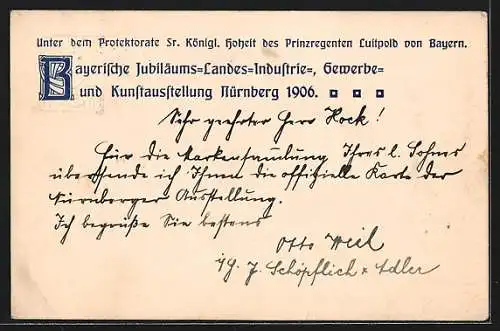 Unter dem Protektorate Sr. Königl. Hoheit des Prinzregenten Luitpold von Bayern.
Bayerische Jubiläums=Landes=Industrie=, Gewerbe=
und Kunstausstellung Nürnberg 1906.
Sehr geehrter Herr Hock!
Für die Kartensamlung Ihres l. Sohnes
übersende ich Ihnen die offizielle Karte der
Nürnberger Ausstellung.
Ich begrüße Sie bestens
Otto Weil
J. Schöpflich & Adler